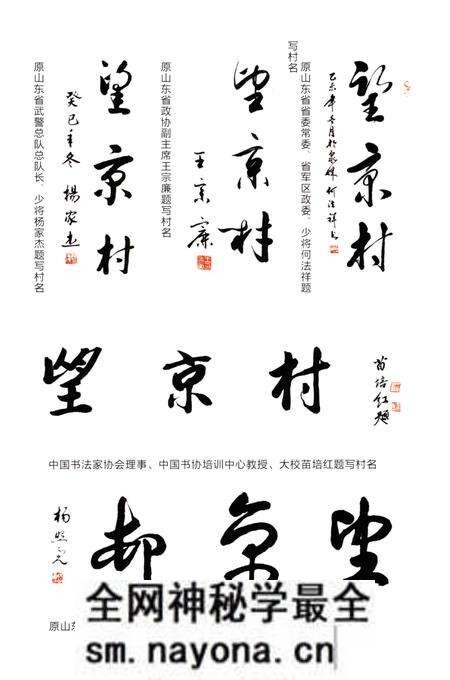 望京村
乙未年冬月于泉城何法祥书
原山东省省委常委、省军区政委、少将何法祥题
写村名
望京村
王宗廉
原山东省政协副主席王宗廉题写村名
望京村
癸巳年冬 杨家杰
原山东省武警总队总队长、少将杨家杰题写村名
望京村
苗培红题
中国书法家协会理事、中国书协培训中心教授、大校苗培红题写村名
望京邨
原山东
全网神秘学最全
sm.nayona.cn